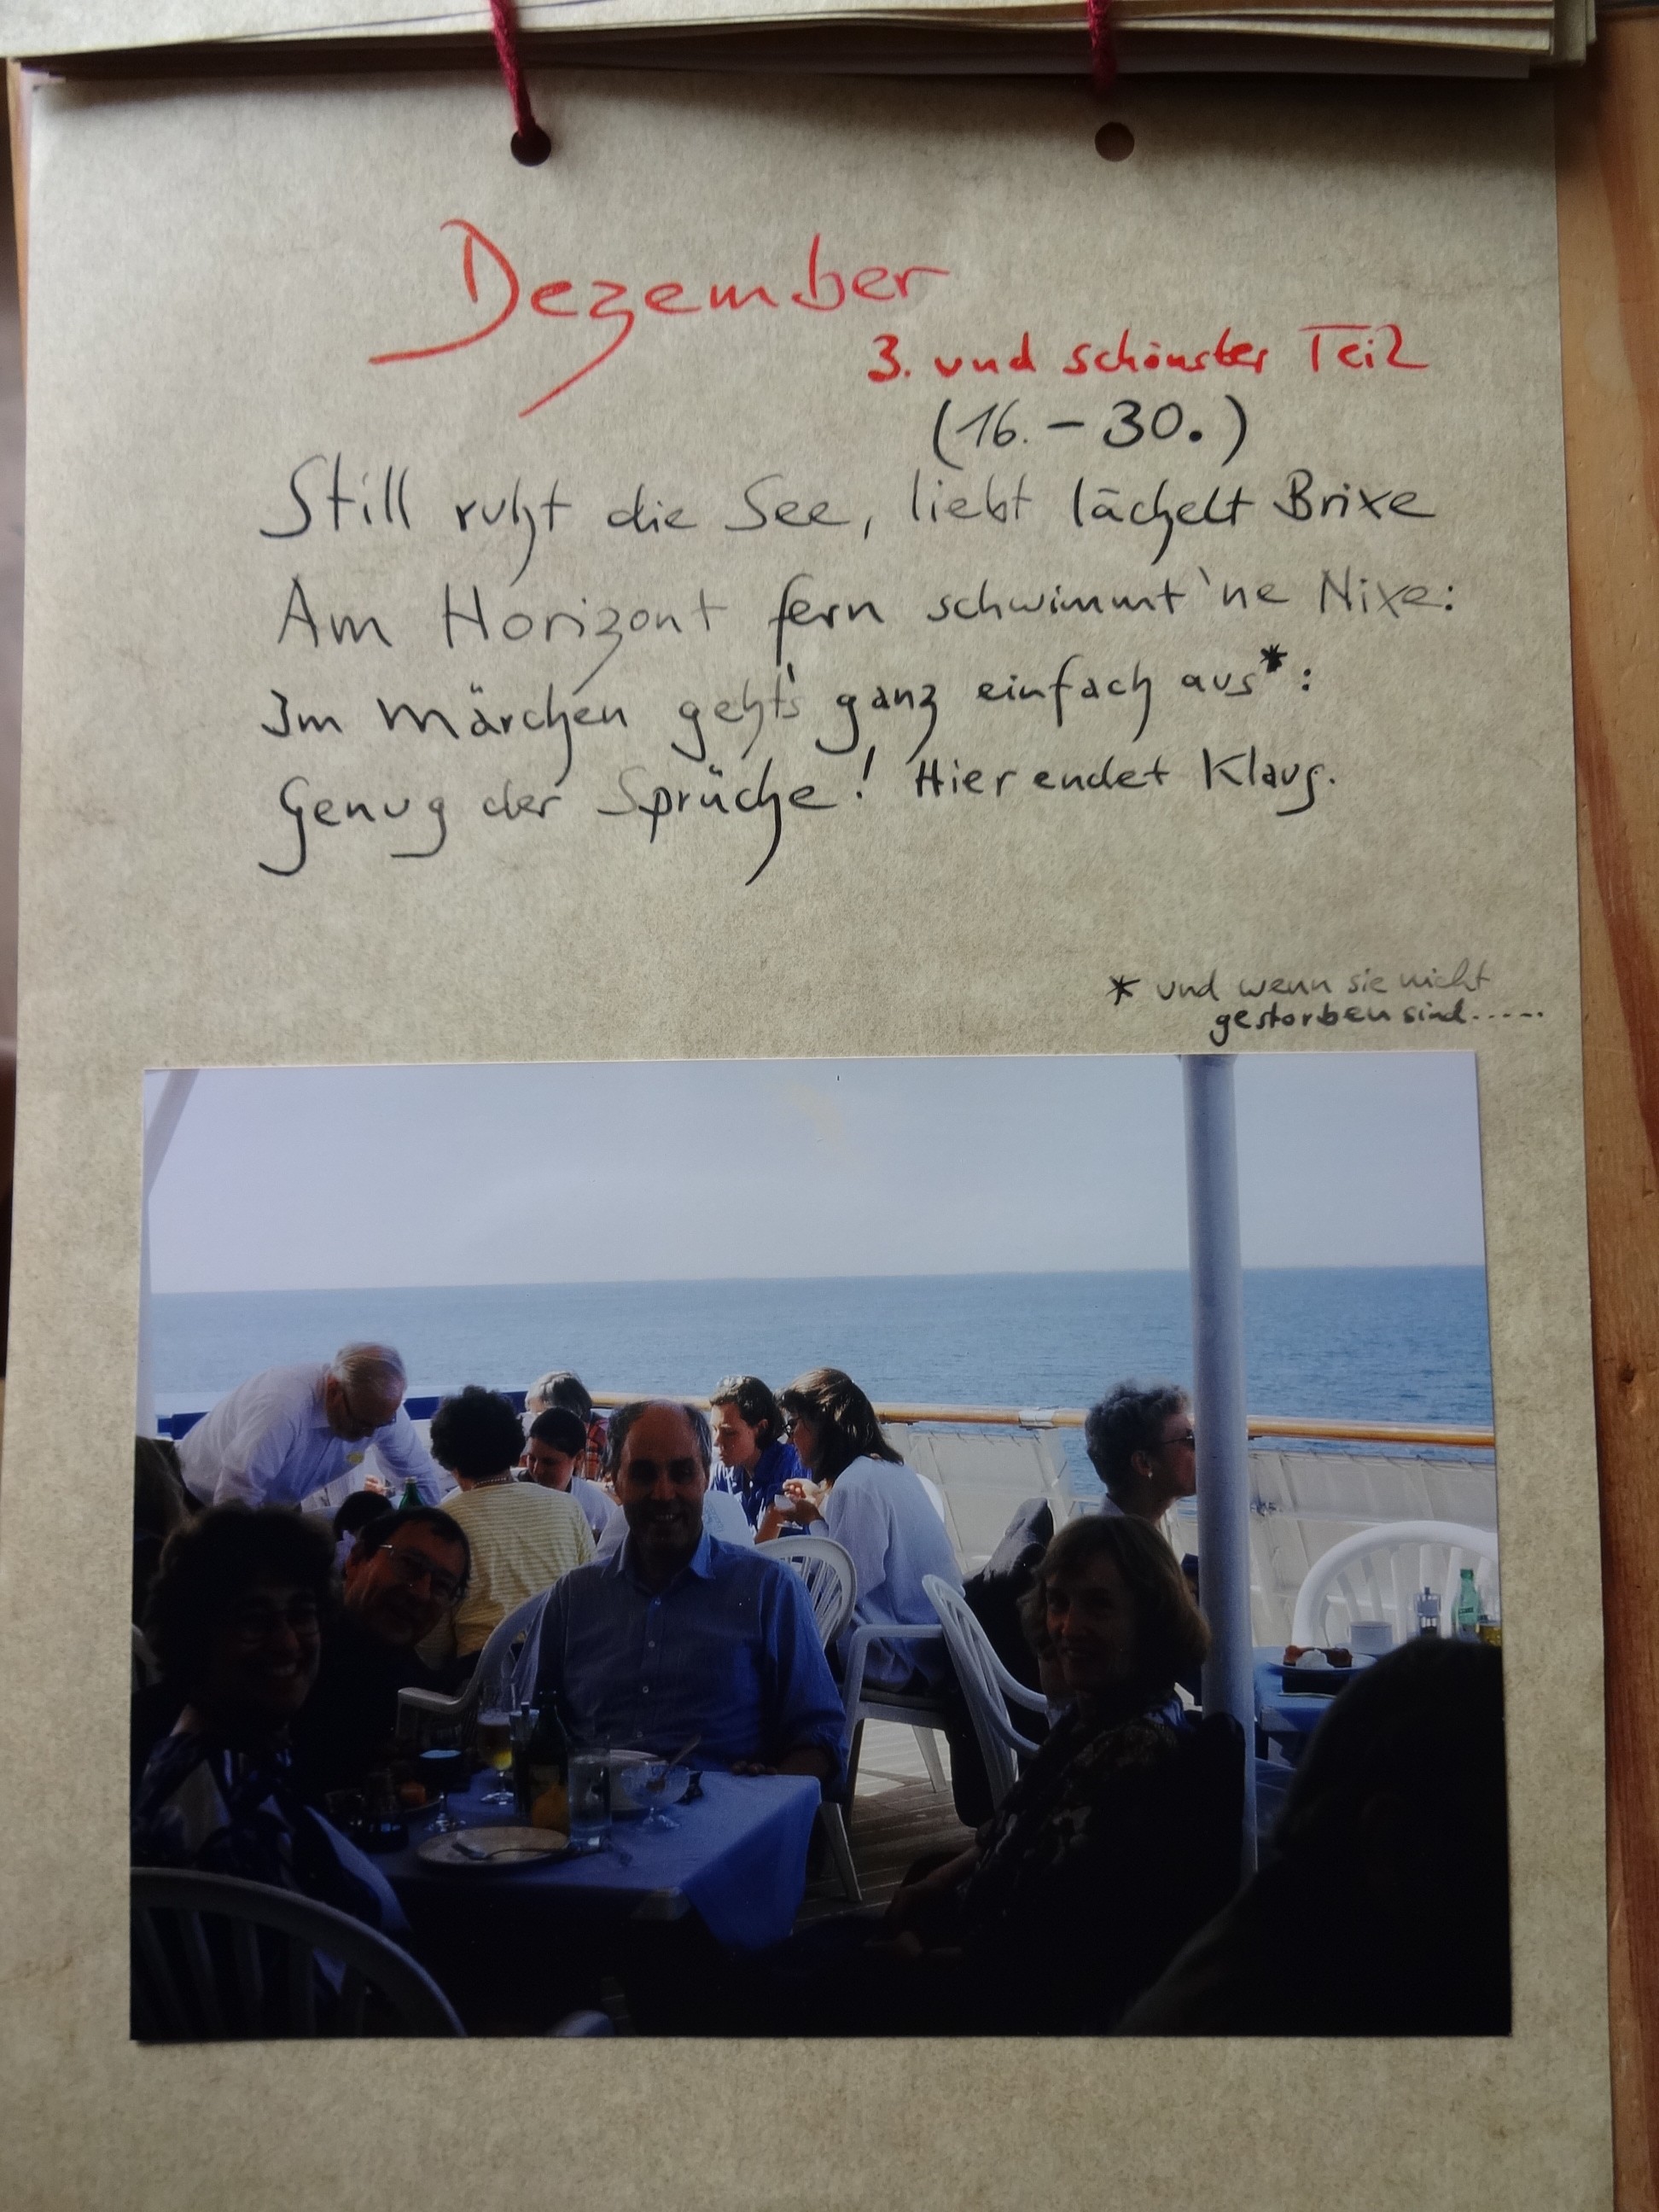 Dezember
3. und schönster Teil
(16. – 30.)
Still ruht die See, liebt lächelt Brixe
Am Horizont fern schwimmt 'ne Nixe:
Im Märchen geht's ganz einfach aus*:
Genug der Sprüche! Hier endet Klaus.
* und wenn sie nicht
gestorben sind......